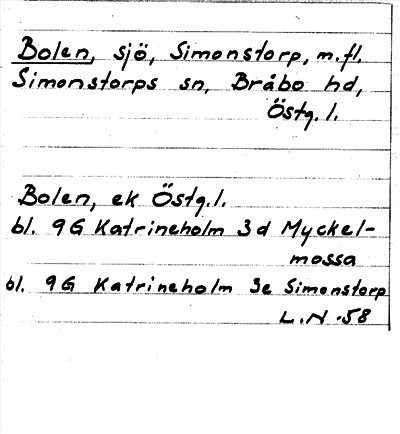 Bolen, sjö, Simonstorp, m.fl.
Simonstorps sn, Bråbo hd,
Östg. l.
Bolen, ek Östg. l.
bl. 9G Katrineholm 3d Myckel-
mossa
bl. 9G Katrineholm 3e Simonstorp
L.N -58